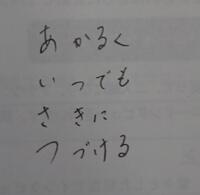 あかるく
いつでも
さきに
つづける